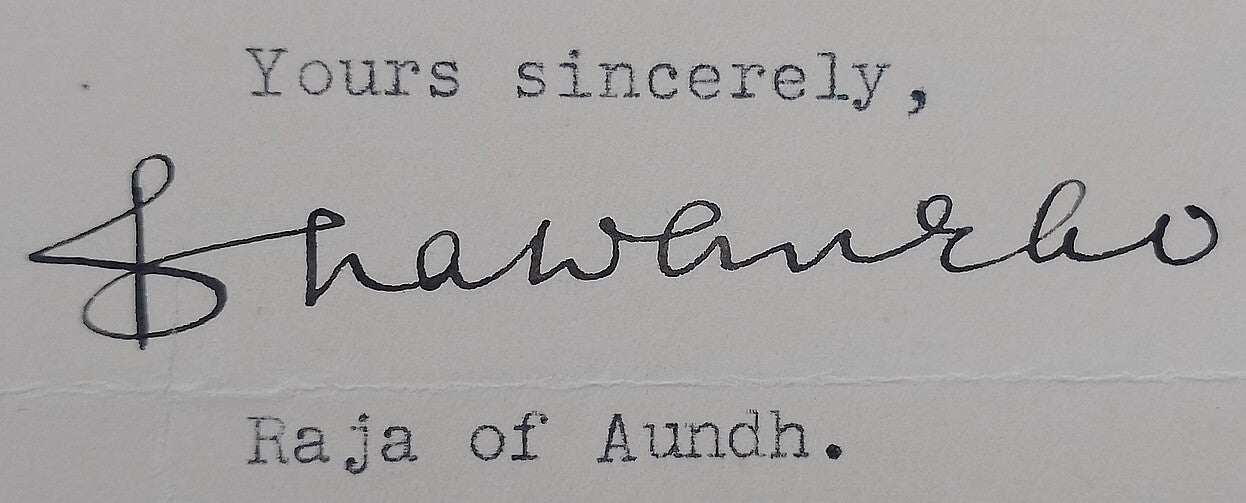 Yours sincerely,
Bhawanrao
Raja of Aundh.